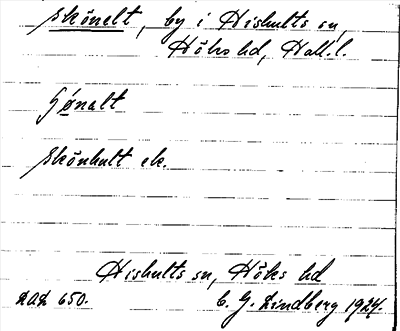 Skönelt, by i Hishults sn,
Höks hd, Hall. l.
Skönhult ek.
Hishults sn, Höks hd
C. G. Lindberg 1924.